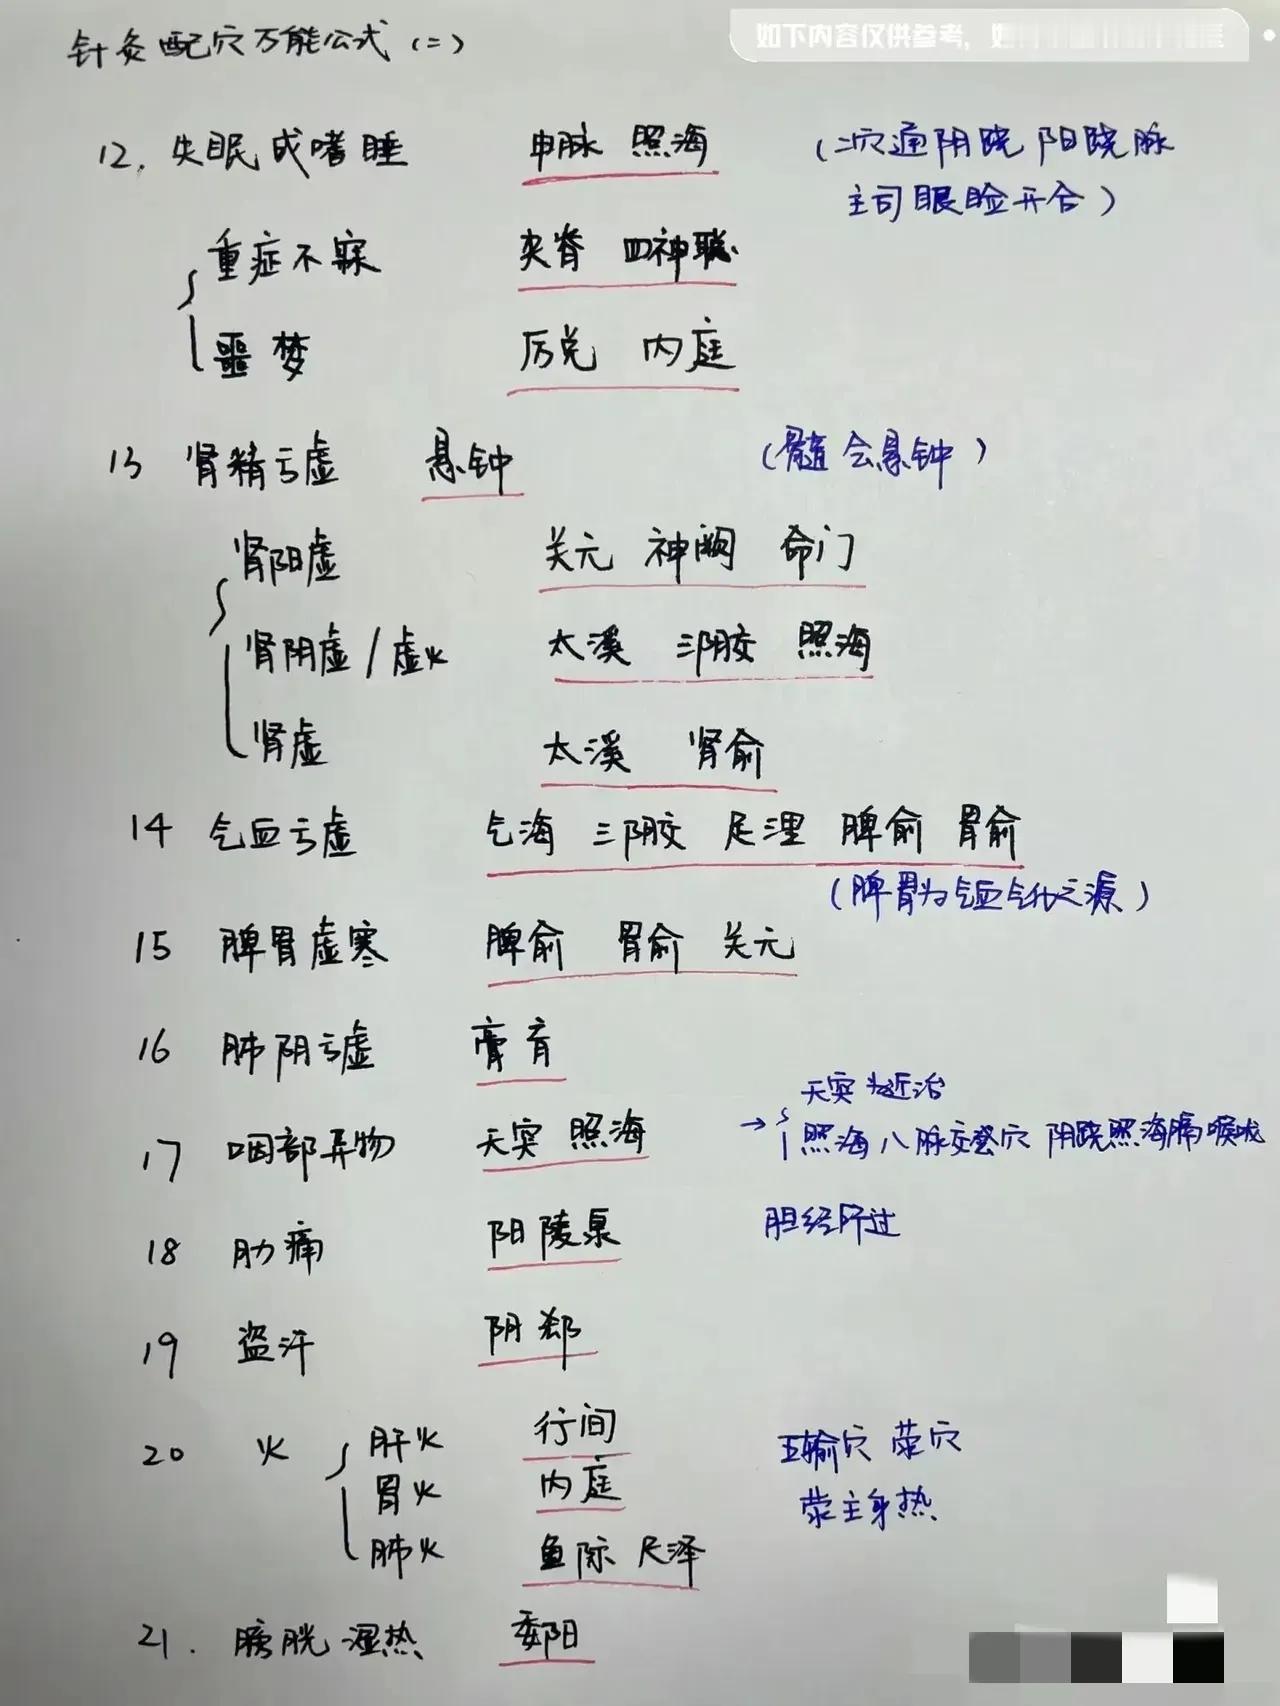 针灸配穴万能公式（二）
如下内容仅供参考，如
12. 失眠或嗜睡 申脉 照海 （二穴通阴跷 阳跷脉
主司眼睑开合）
重症不寐 夹脊 四神聪
噩梦 厉兑 内庭
13 肾精亏虚 悬钟 （髓会悬钟）
肾阳虚 关元 神阙 命门
肾阴虚/虚火 太溪 三阴交 照海
肾虚 太溪 肾俞
14 气血亏虚 气海 三阴交 足三里 脾俞 胃俞
（脾胃为气血生化之源）
15 脾胃虚寒 脾俞 胃俞 关元
16 肺阴亏虚 膏肓
17 咽部异物 天突 照海 → 天突为近治
照海八脉交会穴 阴跷照海膈喉咙
18 肋痛 阳陵泉 胆经所过
19 盗汗 阴郄
20 火 肝火 行间 五输穴 荥穴
胃火 内庭 荥主身热
肺火 鱼际 尺泽
21. 膀胱湿热 委阳